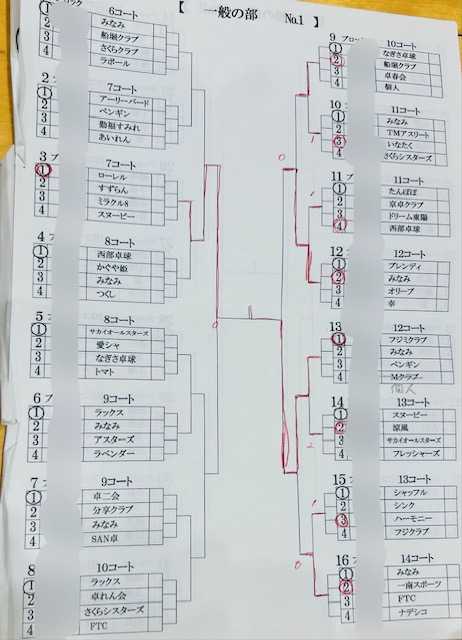 【 一般の部 No.1 】
ロック 6コート
① みなみ
2 船堀クラブ
3 さくらクラブ
4 ラポール
2 ブ 7コート
① アーリーバード
2 ペンギン
3 勤福すみれ
4 あいれん
3 ブ 7コート
① ローレル
2 すずらん
3 ミラクル8
4 スヌーピー
4 8コート
① 西部卓球
2 かぐや姫
3 みなみ
4 つくし
5 ブ 8コート
① サカイオールスターズ
2 愛シャ
3 なぎさ卓球
4 トマト
6 ブ 9コート
① ラックス
2 みなみ
3 アスターズ
4 ラベンダー
7 ブ 9コート
① 卓二会
2 分享クラブ
3 みなみ
4 SAN卓
8 10コート
① ラックス
2 卓れん会
3 さくらシスターズ
4 FTC
9 ブロ 10コート
① なぎさ卓球
② 船堀クラブ
3 卓春会
4 個人
10 11コート
① みなみ
2 TMアスリート
③ いなたく
4 さくらシスターズ
11 ブ 11コート
① たんぽぽ
2 京卓クラブ
3 ドリーム東陽
④ 西部卓球
12 12コート
① ブレンディ
② みなみ
3 オリーブ
4 幸
13 12コート
① フジミクラブ
2 みなみ
3 ペンギン
4 Mクラブ
個人
14 13コート
① スヌーピー
② 涼風
3 サカイオールスターズ
4 フレッシャーズ
15 13コート
① シャッフル
2 シンク
③ ハーモニー
4 フジクラブ
16 ブ 14コート
① みなみ
② 一南スポーツ
3 FTC
4 ナデシコ
0
1
1
0
2
1
0